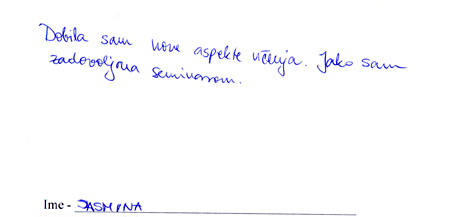 Dobila sam nove aspekte učenja. Jako sam
zadovoljna seminarom.
Ime - JASMINA